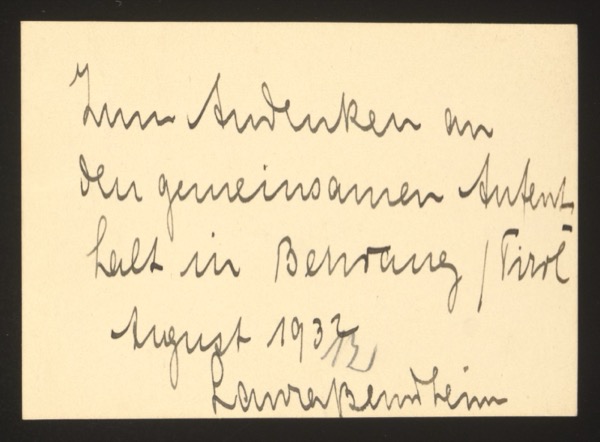 Zum Andenken an
den gemeinsamen Aufent-
halt in Berwang / Tirol
August 1932